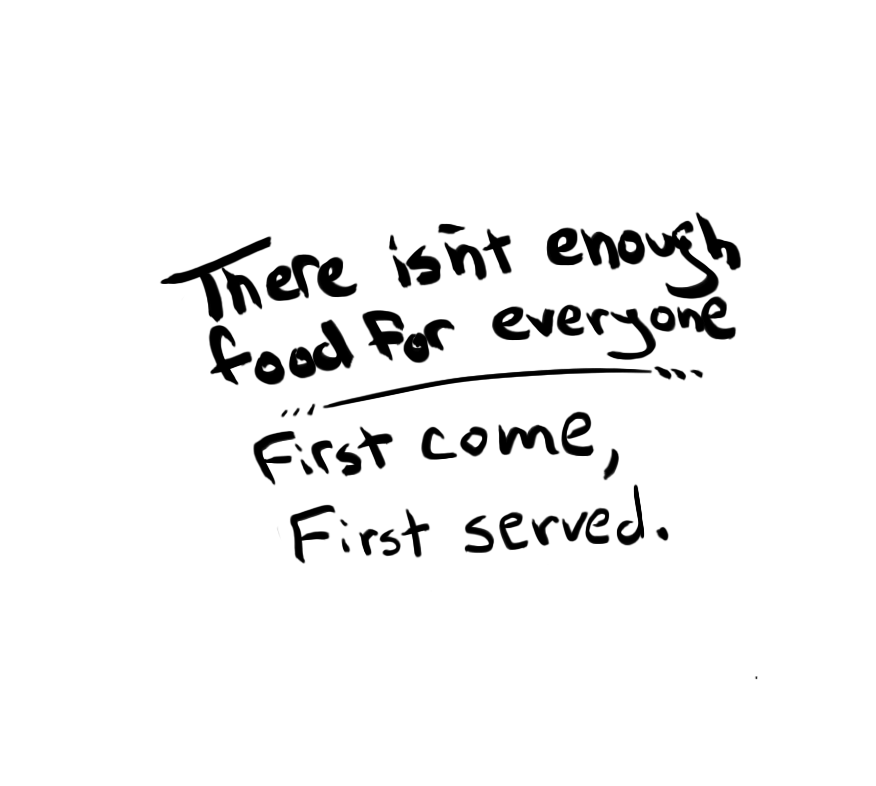 There isn't enough
food for everyone
First come,
First served.